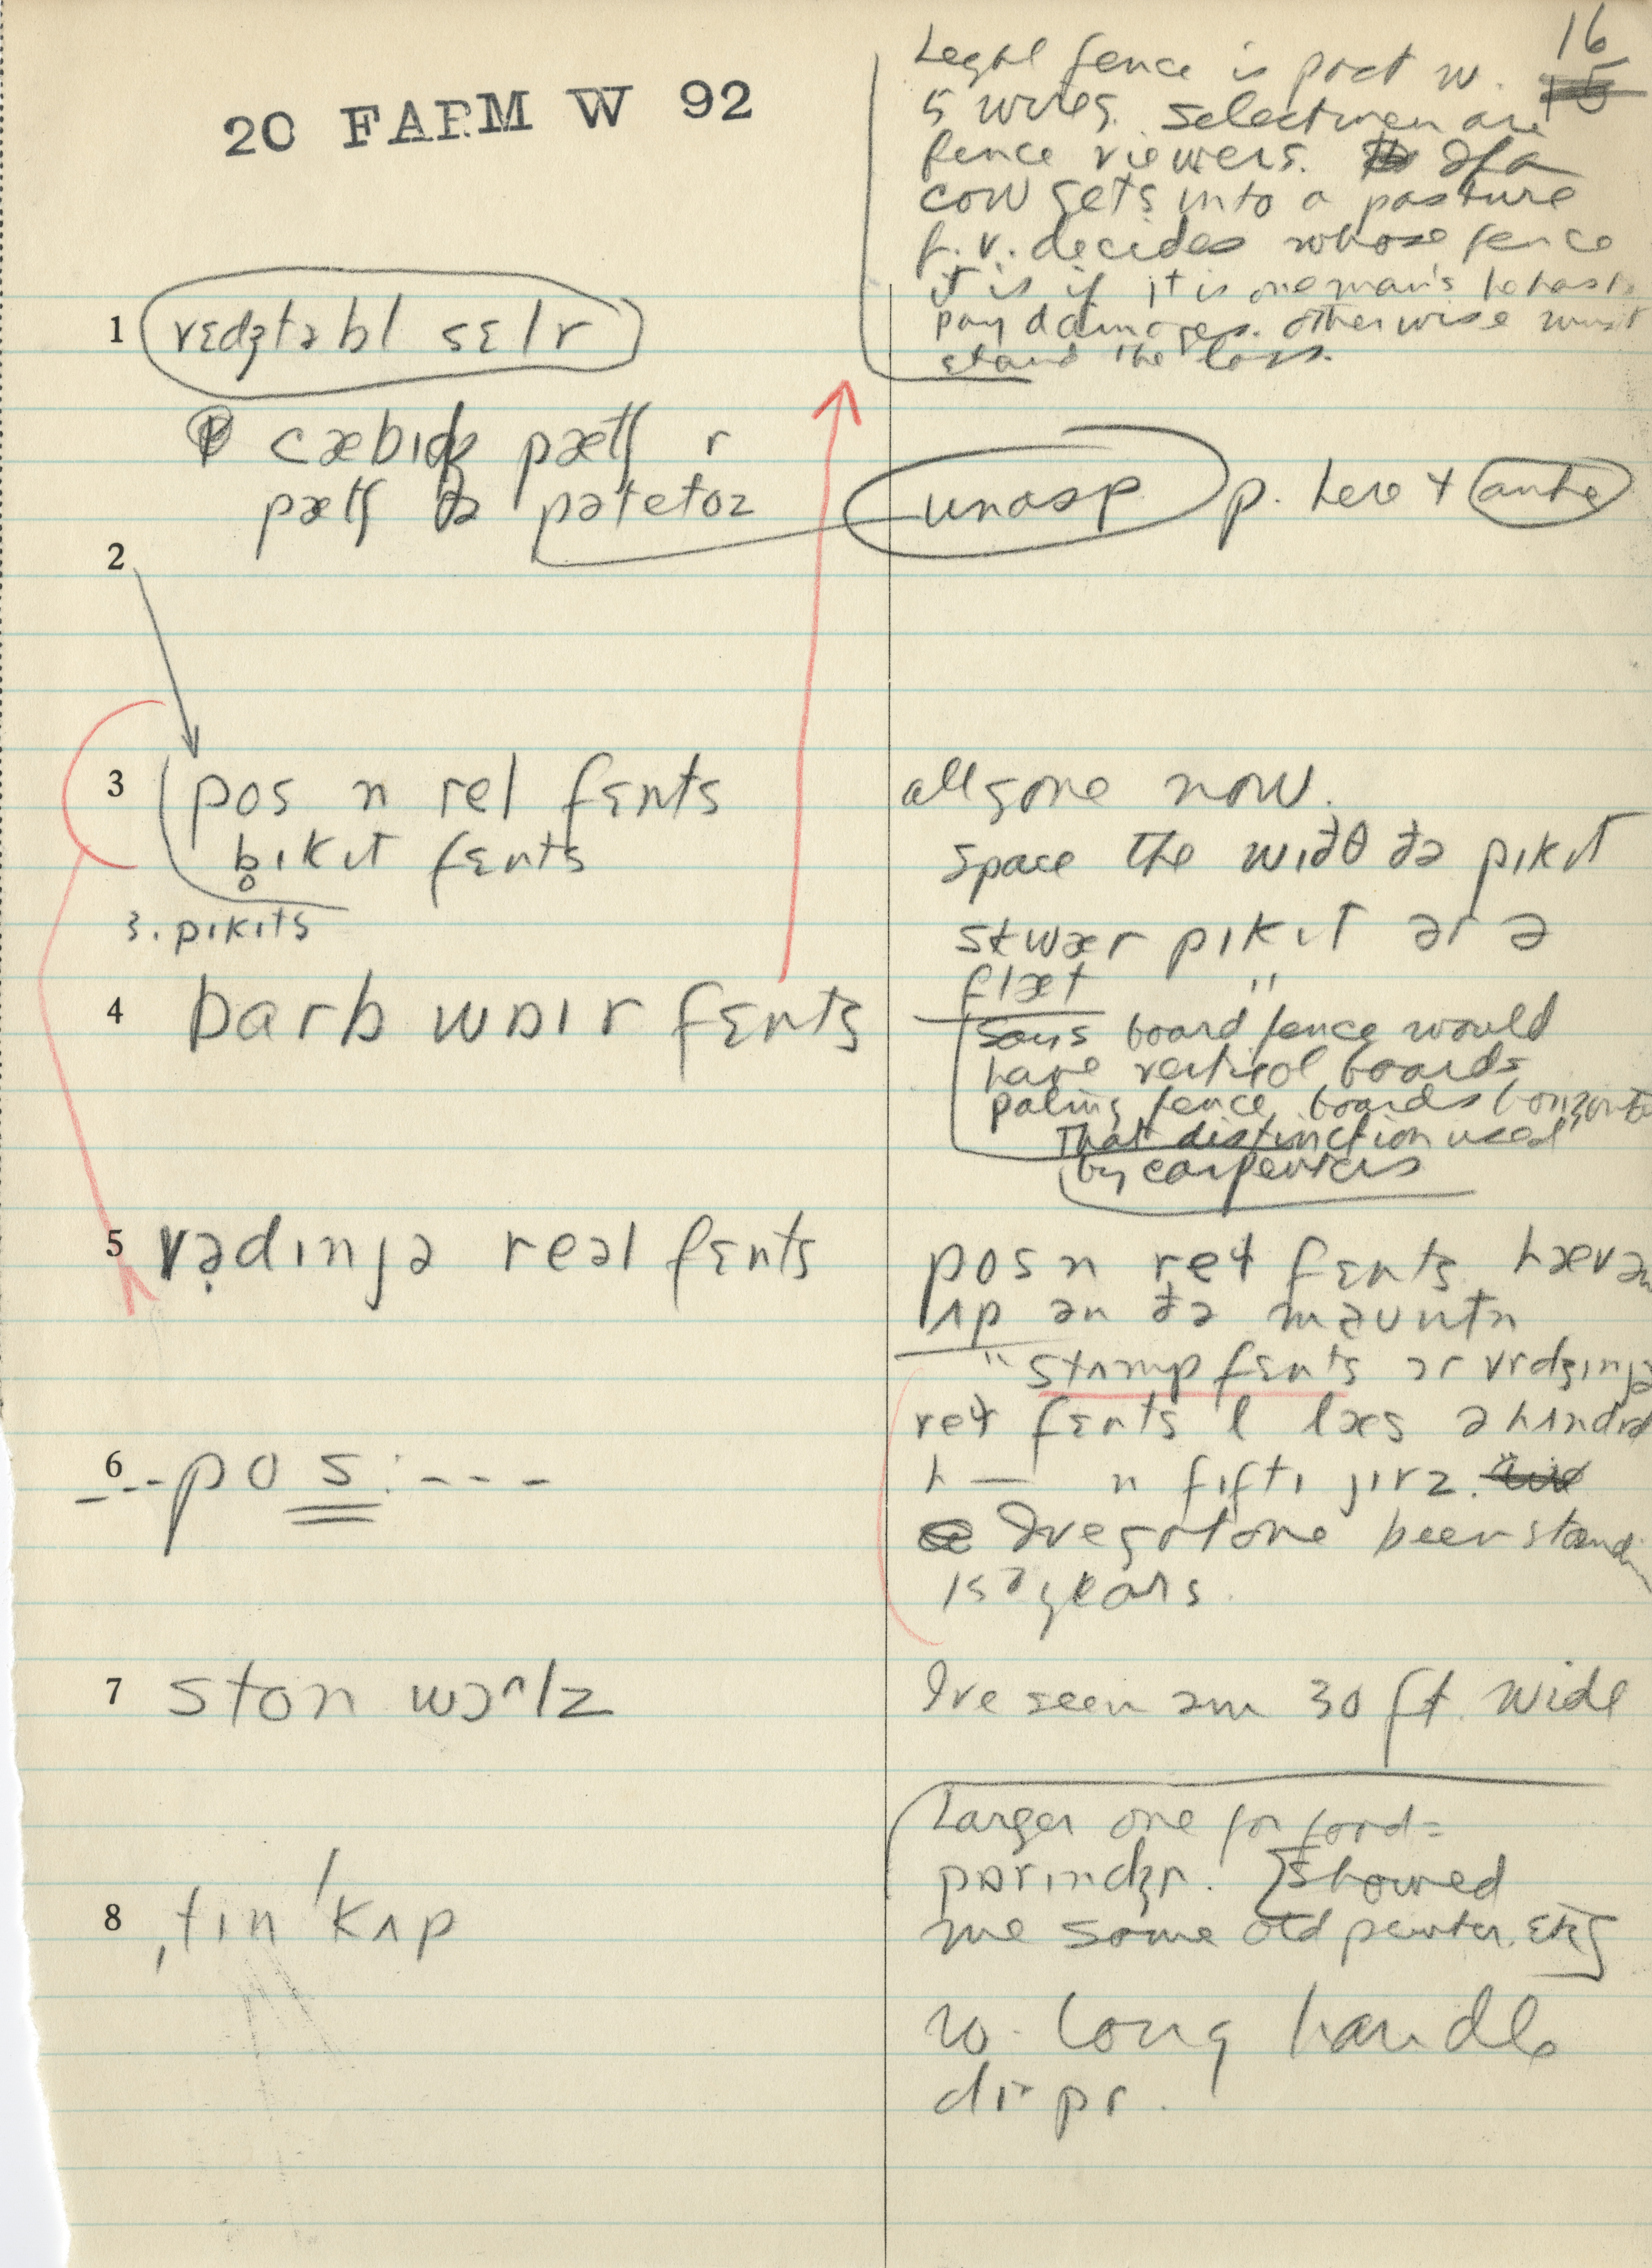 20 FARM W 92
16
Legal fence is post w.
5 wires. Selectmen are
fence viewers. If a
cow gets into a pasture
f.v. decides whose fence
it is if it is one man's he has to
pay damages. otherwise must
stand the loss.
1 vɛdʒtəbl sɛlr
cæbidʒ pætʃ r
pætʃ ðə pətetoz
unasp p. here +
2
3 pos n rel fɛnts
all gone now.
b̥ıkıt fɛnts
space the wıdθ ðə pıkıt
3. pıkıts
skwær pıkıt ər ə
flæt "
4 barb wɒır fɛnts
says board fence would
have vertical boards
paling fence, boards horizontal
That distinction used
by carpenters
5 vədınjə reəl fɛnts
pos n reɫ fɛnts
ʌp ən ðə mɐʊntn
" stʌmp fɛnts ər vrdʒınjə
reɫ fɛnts l læs ə hʌndrd
6 - - pos : - - -
h — n fıftı jırz.
I've got one been standin
150 years.
7 ston wɔ^lz
I've seen əm 30 ft. wide
Larger one for
8 ˌtın ˈkʌp
pɒrındʒr. [showed
me some old pewter. etc]
w. long handle
dıpr.